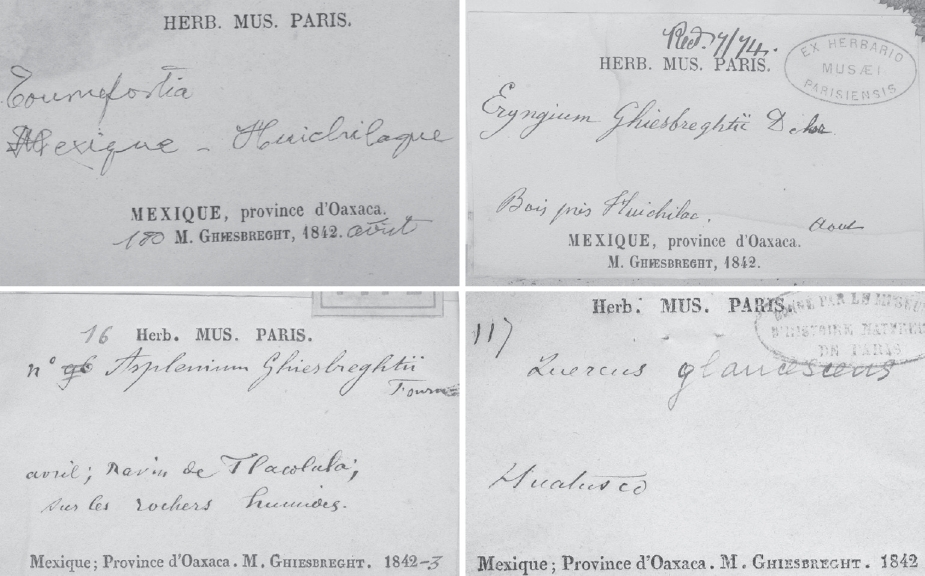 HERB. MUS. PARIS.
Tournefortia
Mexique - Huichilaque
MEXIQUE, province d'Oaxaca.
180 M. GHIESBREGHT, 1842. avril
Red. 7/74.
HERB. MUS. PARIS.
EX HERBARIO
MUSÆI
PARISIENSIS
Eryngium Ghiesbreghtii Dcne
Bois près Huichilac.
Aout
MEXIQUE, province d'Oaxaca.
M. GHIESBREGHT, 1842.
16 Herb. MUS. PARIS.
n° 96 Asplenium Ghiesbreghtii
Fourn
avril; ravin de Tlacolula;
sur les rochers humides.
Mexique; Province d'Oaxaca. M. GHIESBREGHT. 1842-3
Herb. MUS. PARIS.
117
PAR LE MUSEU
D'HISTOIRE NATUREL
DE PARIS
Quercus glaucescens
Huatusco
Mexique; Province d'Oaxaca. M. GHIESBREGHT. 1842